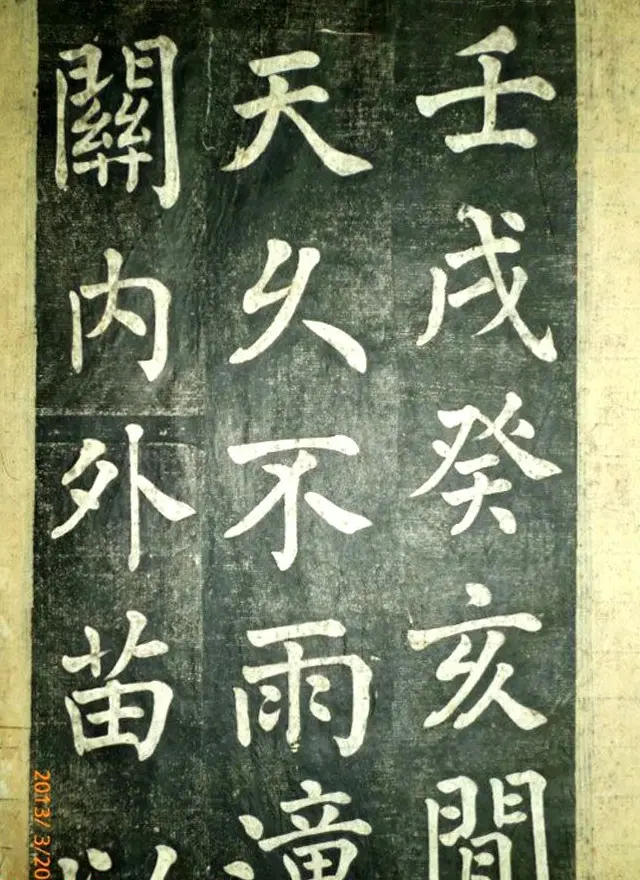 壬戌癸亥間
天久不雨潼
關內外苗
2013/ 3/20